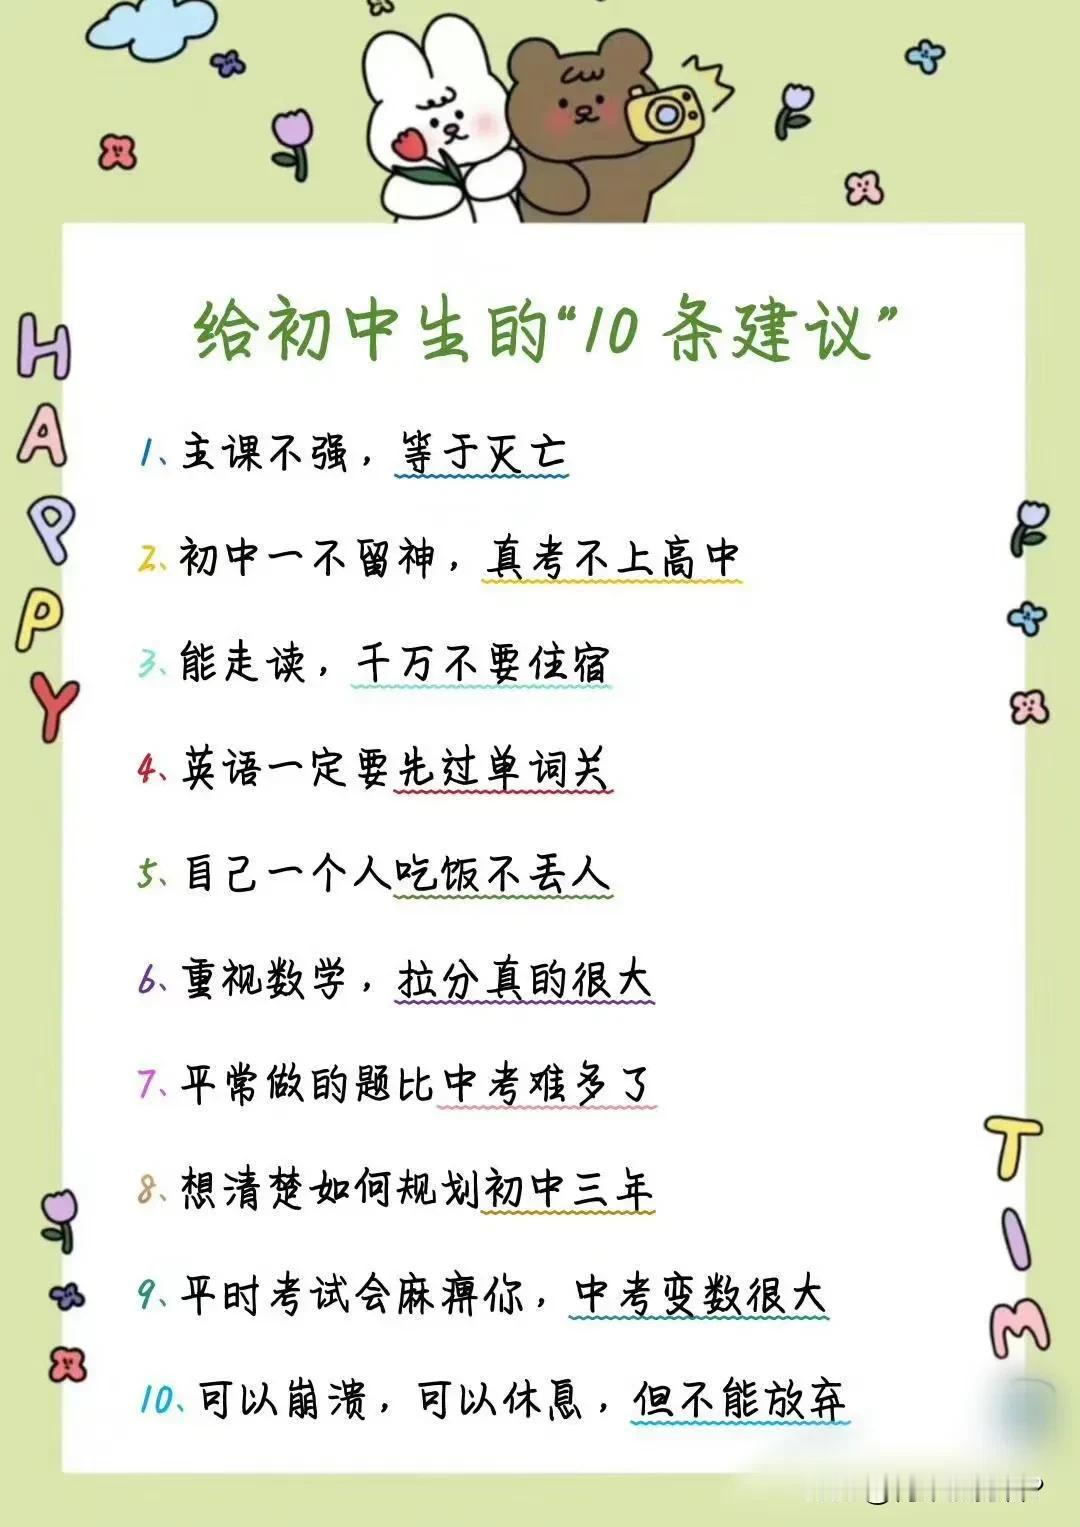 给初中生的“10条建议”
1、主课不强，等于灭亡
2、初中一不留神，真考不上高中
3、能走读，千万不要住宿
4、英语一定要先过单词关
5、自己一个人吃饭不丢人
6、重视数学，拉分真的很大
7、平常做的题比中考难多了
8、想清楚如何规划初中三年
9、平时考试会麻痹你，中考变数很大
10、可以崩溃，可以休息，但不能放弃
HAPPY
TIM